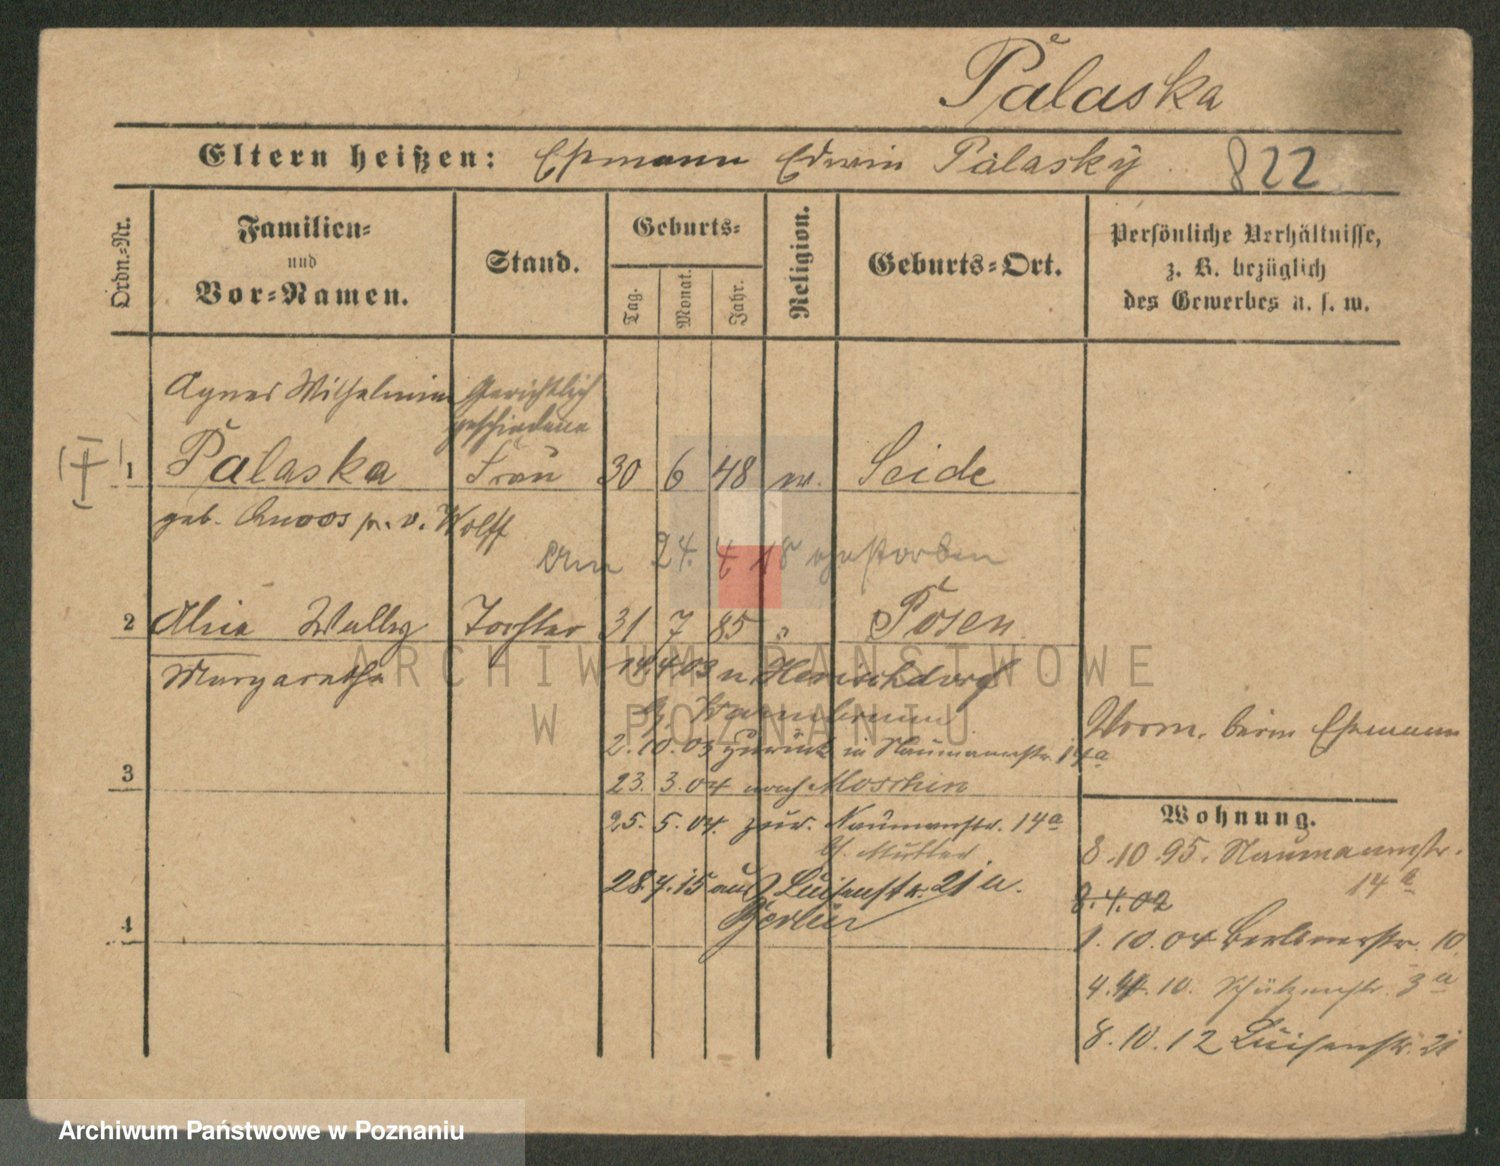 Palaska
Eltern heißen: Ehemann Edwin Palasky 822
Ordn.-Nr.
Familien-
und
Vor-Namen.
Stand.
Geburts-
Tag.
Monat.
Jahr.
Religion.
Geburts-Ort.
Persönliche Verhältnisse,
z. B. bezüglich
des Gewerbes u. s. w.
Agnes Wilhelmine Gerichtlich
geschiedene
1 Palaska Frau 30 6 48 Seide
geb. v. Wolff
Am 24. 4 18 gestorben
2 Wally Tochter 31 7 85 " Posen
Margarethe
14.4.03 n
Warmbrunn
2.10.03 zurück n Naumannstr. 14a
Vorm. beim Ehemann
3
23. 3.04 nach Moschin
Wohnung.
25. 5.04. zur. Naumannstr. 14a
b. Mutter
8.10.95. Naumannstr.
14a
28.4.15 aus Luisenstr. 21 n.
Berlin
8.4.02
4
1.10.04 Berlinerstr. 10
4.4.10. Schützenstr. 3a
8.10.12 Luisenstr. 21
ARCHIWUM PAŃSTWOWE
W POZNANIU
Archiwum Państwowe w Poznaniu